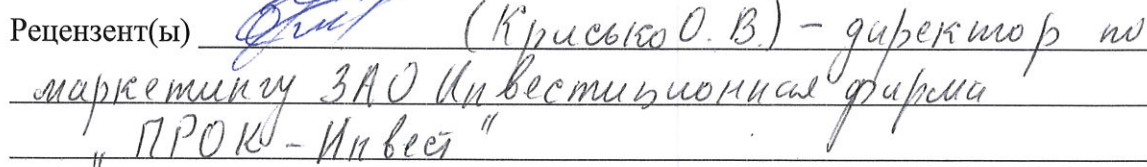 Рецензент(ы) (Крисько О. В.) – директор по
маркетингу ЗАО Инвестиционная фирма
„ПРОК – Инвест"